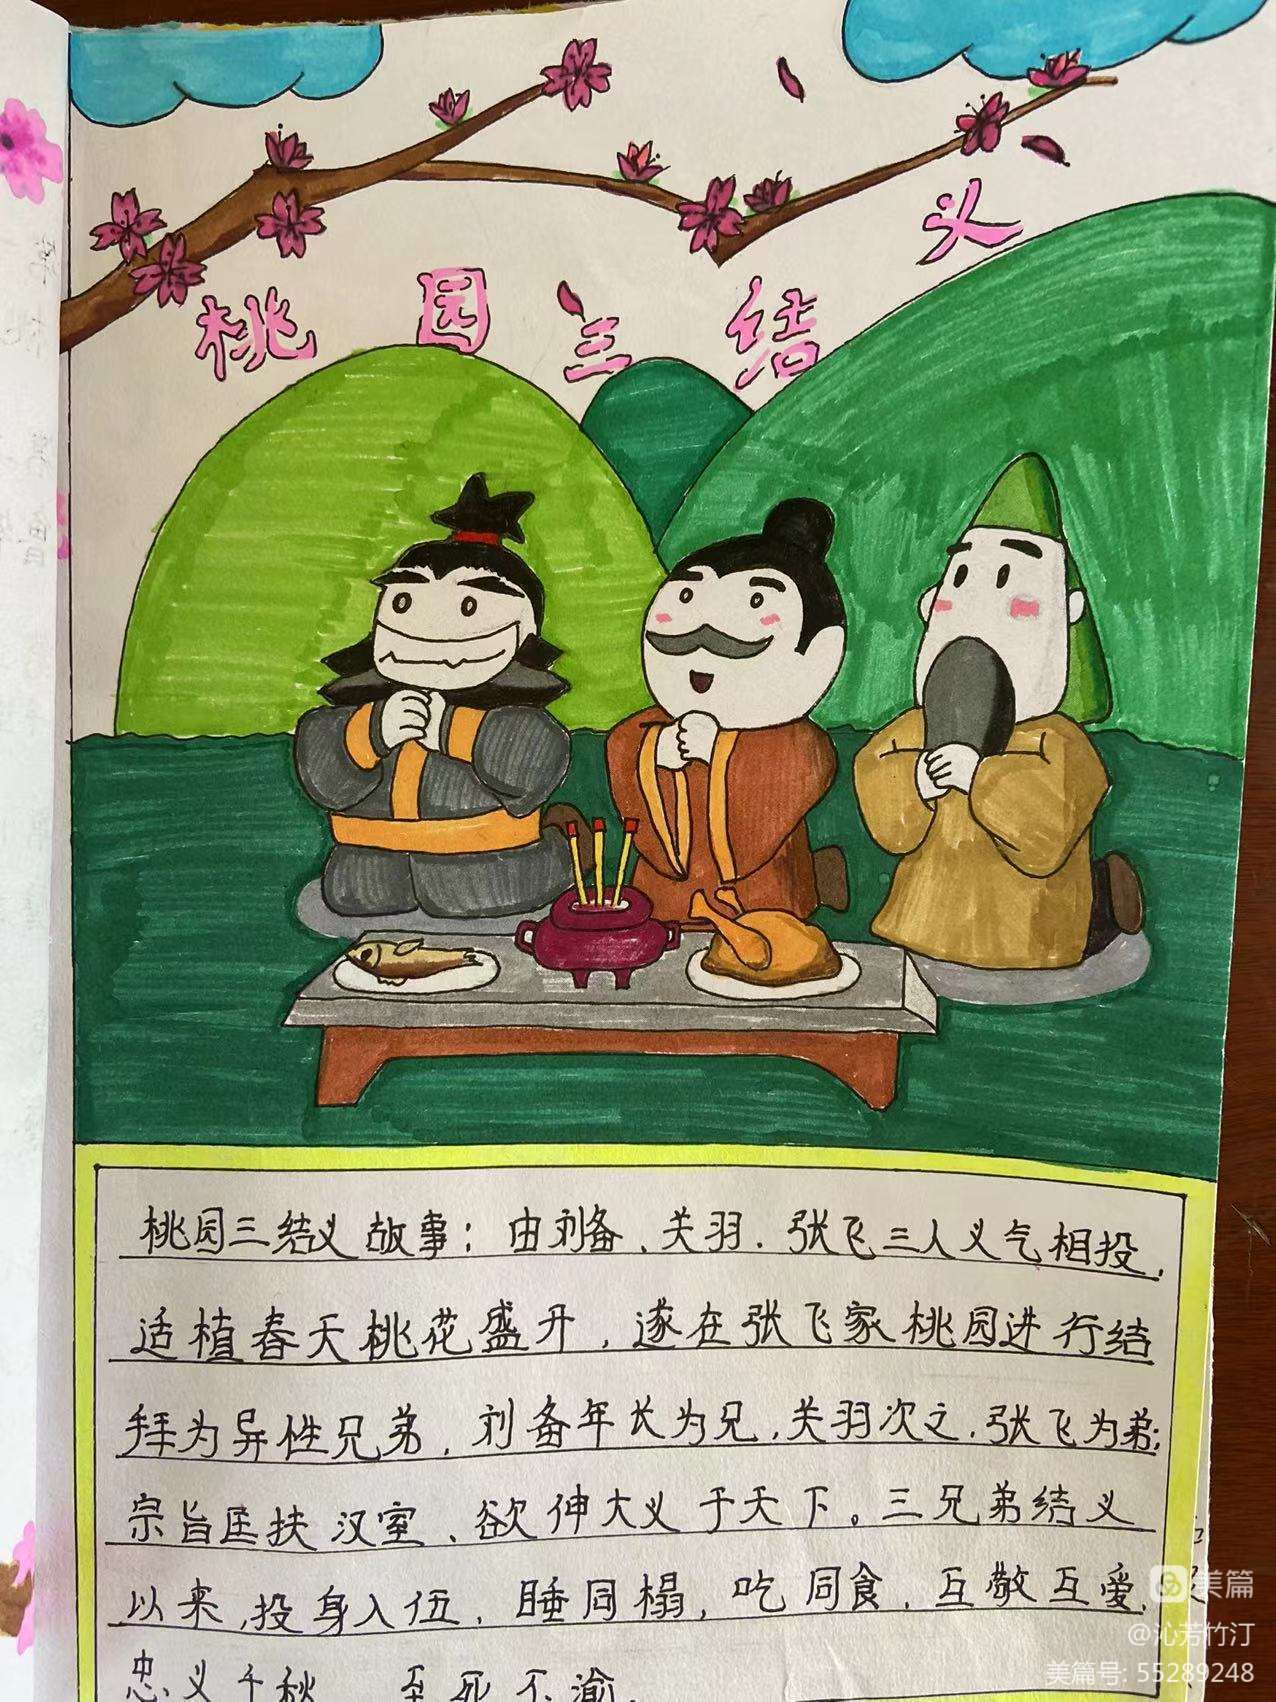 桃园三结义
桃园三结义故事：由刘备、关羽、张飞三人义气相投，
适植春天桃花盛开，遂在张飞家桃园进行结
拜为异性兄弟，刘备年长为兄，关羽次之，张飞为弟；
宗旨匡扶汉室、欲伸大义于天下。三兄弟结义
以来，投身入伍，睡同榻，吃同食，互敬互爱，
忠义千秋 至死不渝，
美篇
@沁芳竹汀
美篇号: 55289248